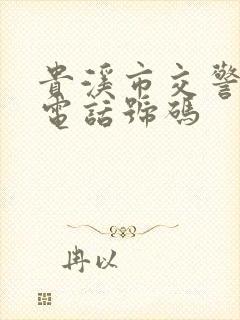 貴溪市交警
電話號碼
冉以